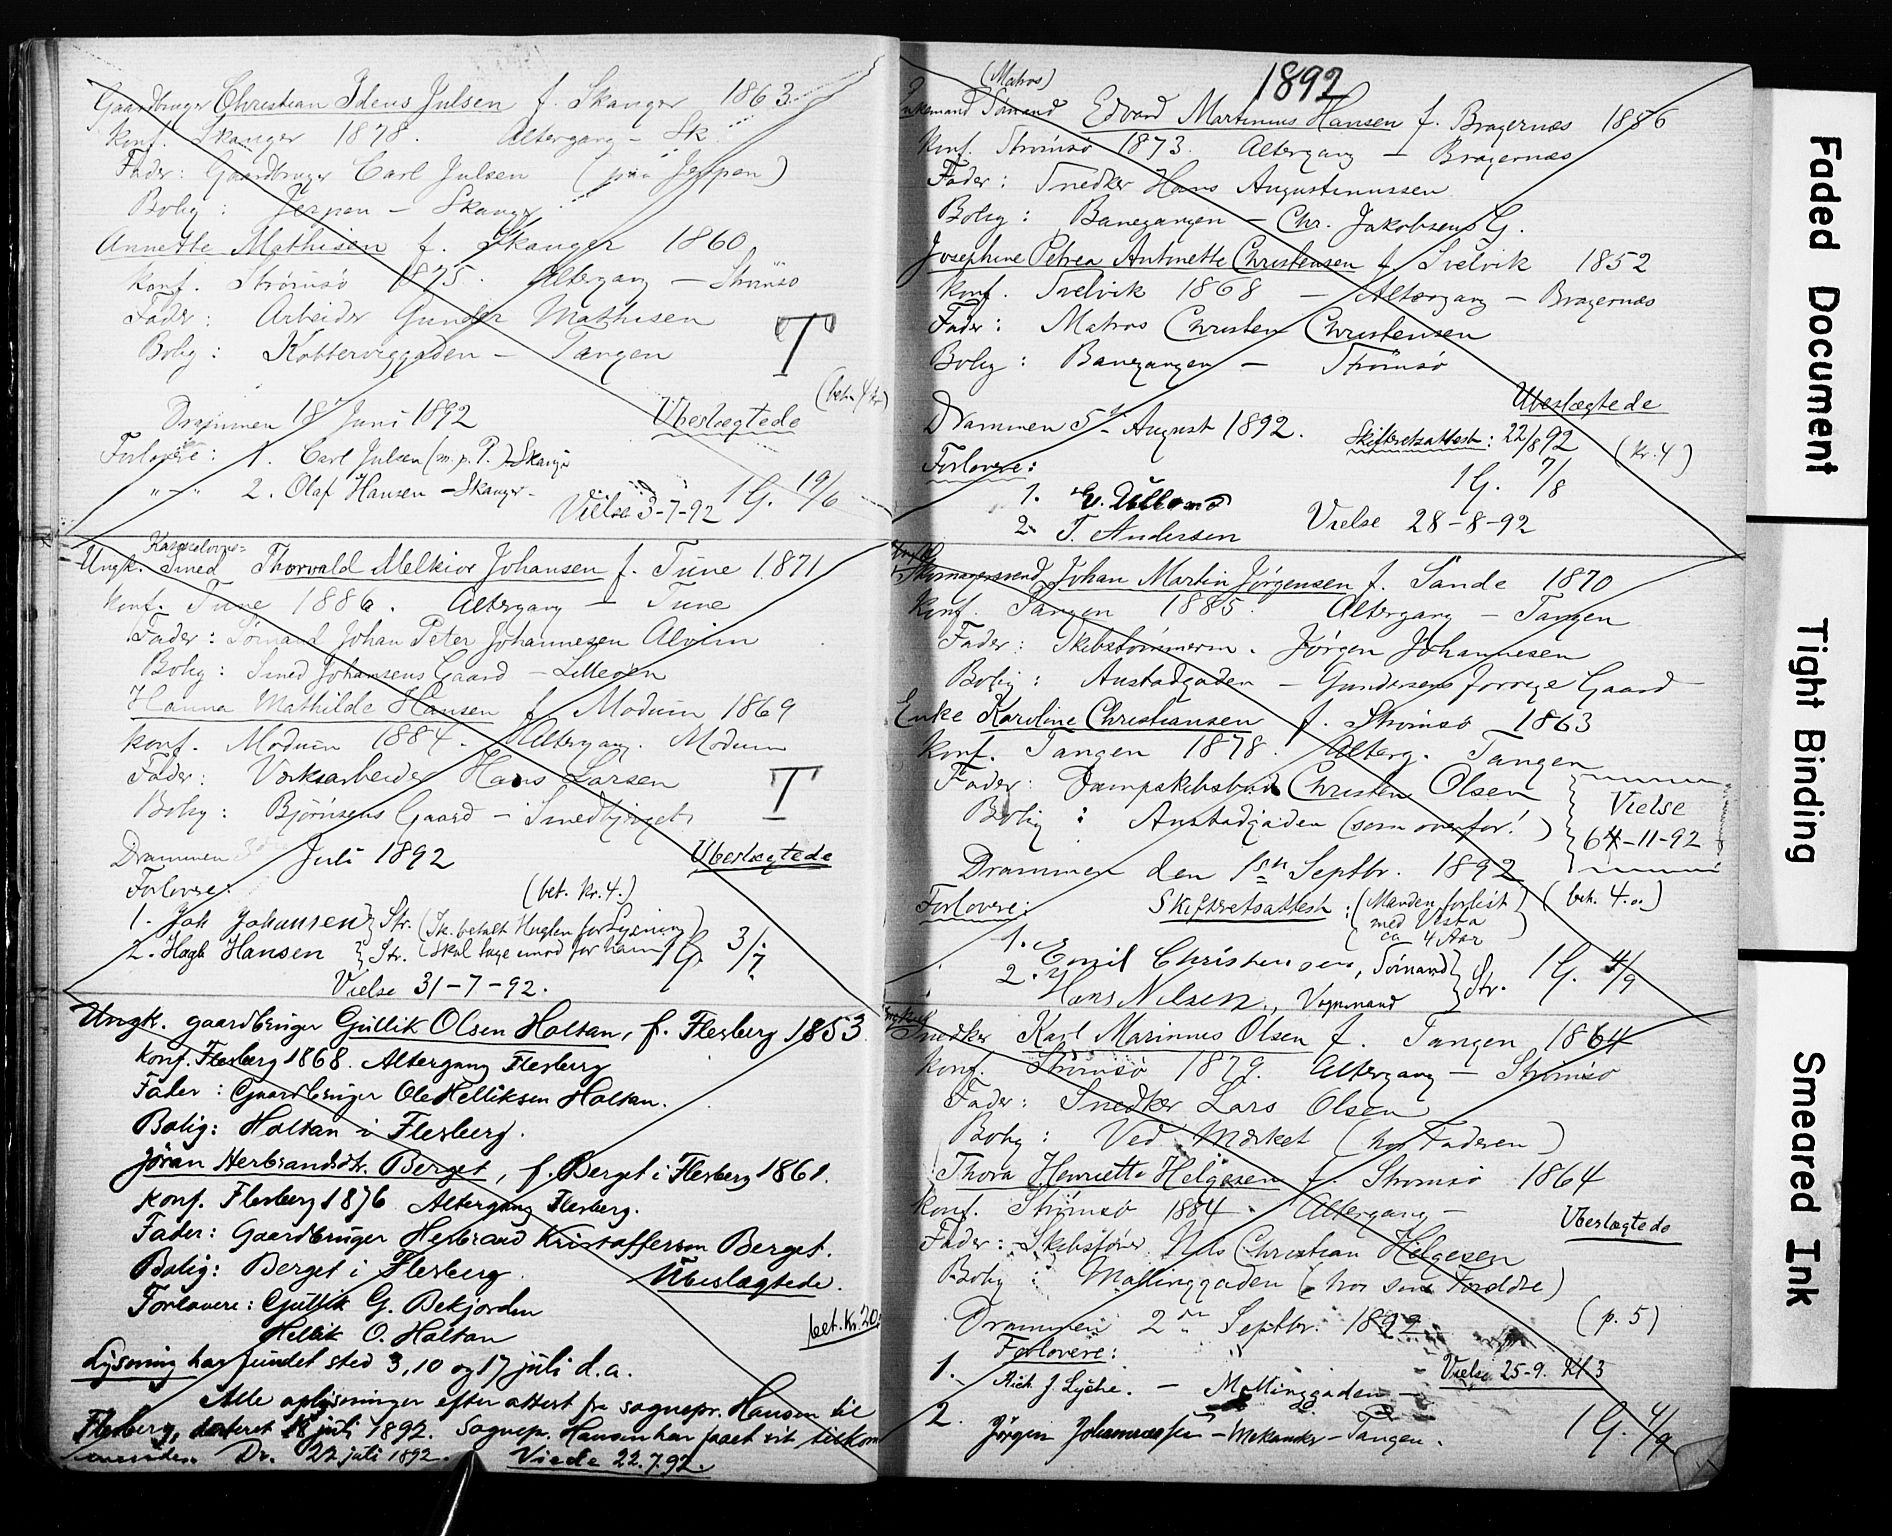 Gaardbruger Christian Idens Julsen f. Skanger 1863
Konf. Skanger 1878. Altergang - Sk.
Fader: Gaardbruger Carl Julsen (paa Jerpen)
Bolig: Jerpen - Skanger
Annette Mathisen f. Skanger 1860
Konf. Strømsø 1875. Altergang - Strømsø
Fader: Arbeider Gunder Mathisen
Bolig: - Tangen
T
(bet. 4 kr)
Drammen 18 Juni 1892 Ubeslægtede
Forlovere: 1. Carl Julsen (m.p.P.) - Skanger
" - " 2. Olaf Hansen - Skanger -
Vielse 3-7-92 1 G. 19/6
Ungk. Smed Thorvald Melkior Johansen f. Tune 1871
Konf. Tune 1886. Altergang - Tune
Fader: Sømand Johan Peter Johannesen Alvim
Bolig: Smed Johansens Gaard -
Hanna Mathilde Hansen f. Modum 1869
Konf. Modum 1884. Altergang. Modum
Fader: Værksarbeider Hans Larsen
T
Bolig: Bjørnsens Gaard -
Drammen Juli 1892 Ubeslægtede
Forlovere: (bet. kr. 4.)
1. Joh Johansen } Str.
2. Hagb Hansen } Str. 1 G. 3/7
Vielse 31-7-92.
Ungk. gaardbruger Gullik Olsen Holtan, f. Flesberg 1853
Konf. Flesberg 1868. Altergang Flesberg
Fader: Gaardbruger Ole Helliksen Holtan.
Bolig: Holtan i Flesberg.
Jöran Herbrandsdtr. Berget, f. Berget i Flesberg 1861.
Konf. Flesberg 1876 Altergang Flesberg.
Fader: Gaardbruger Herbrand Kristoffersen Berget.
Bolig: Berget i Flesberg.
Ubeslægtede.
Forlovere: Gullik G. Bekjorden
bet. Kr. 20.
Hellik O. Holtan
Lysning har fundet sted 3, 10 og 17 juli d.a.
Alle oplysninger efter attest fra sognepr. Hansen til
Flesberg, dateret 18 juli 1892. Sognepr. Hansen har faaet sit
Dr. 22 juli 1892. Viede 22.7.92.
1892
(Matros)
Enkemand Sømand Edvard Martinius Hansen f. Bragernæs 1856
Konf. Strømsø 1873. Altergang - Bragernæs
Fader: Snedker Hans Augustinussen
Bolig: Banegangen - Chr. Jakobsens G.
Josephine Petrea Antonette Christensen f. Svelvik 1852
Konf. Svelvik 1868 - Altergang - Bragernæs
Fader: Matros Christen Christensen
Bolig: Banegangen - Strømsø
Ubeslægtede
Drammen 5 August 1892. Skifteretsattest: 22/8 92 (kr. 4)
Forlovere: 1 G. 7/8
1.
2. T. Andersen Vielse 28-8-92
Ungkl.
Skomagersvend Johan Martin Jørgensen f. Sande 1870
Konf. Tangen 1885. Altergang - Tangen
Fader: Skibstømmerm. Jørgen Johannesen
Bolig: Austadgaden - Gundersens forrige Gaard
Enke Karoline Christiansen f. Strømsø 1863
Konf. Tangen 1878. Alterg. Tangen
Fader: Christen Olsen
Bolig: Austadgaden (som ovenfor!)
Vielse
6-11-92
Drammen den 1sn Septbr. 1892
Forlovere: Skifteretsattest: (Manden forlist) (bet. 4.)
med Vesta
ca 4 Aar
1. Emil Christensen, Sømand } Str. 1 G. 4/9
2. Hans Nilsen, Vognmand
Snedker Karl Marinius Olsen f. Tangen 1864
Konf. Strømsø 1879. Altergang - Strømsø
Fader: Snedker Lars Olsen
Bolig: Ved Mærket (hos Faderen)
Thora Henriette Helgesen f. Strømsø 1864
Konf. Strømsø 1884. Altergang -
Ubeslægtede
Fader: Skibsfører Nils Christian Helgesen
Bolig: Mallinggaden (hos sine Forældre)
Drammen 2 Septbr. 1892 (p. 5)
Forlovere:
1. Rich. J. Lyche. - Mallinggaden - Vielse 25-9. Kl 3
2. Jørgen Johannessen - Mekaniker - Tangen. 1 G. 4/9
Faded Document
Tight Binding
Smeared Ink